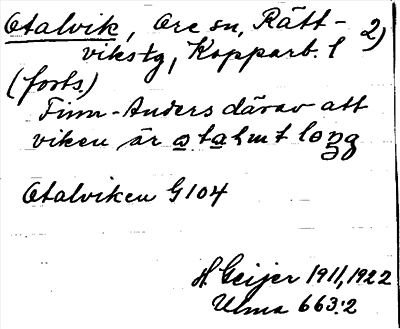 Otalvik, Ore sn, Rätt- 2)
vikstg, Kopparb. l
(forts.)
Finn-Anders därav att
viken är otalmt long
Otalviken G104
H Geijer 1911, 1922
Ulma 663:2